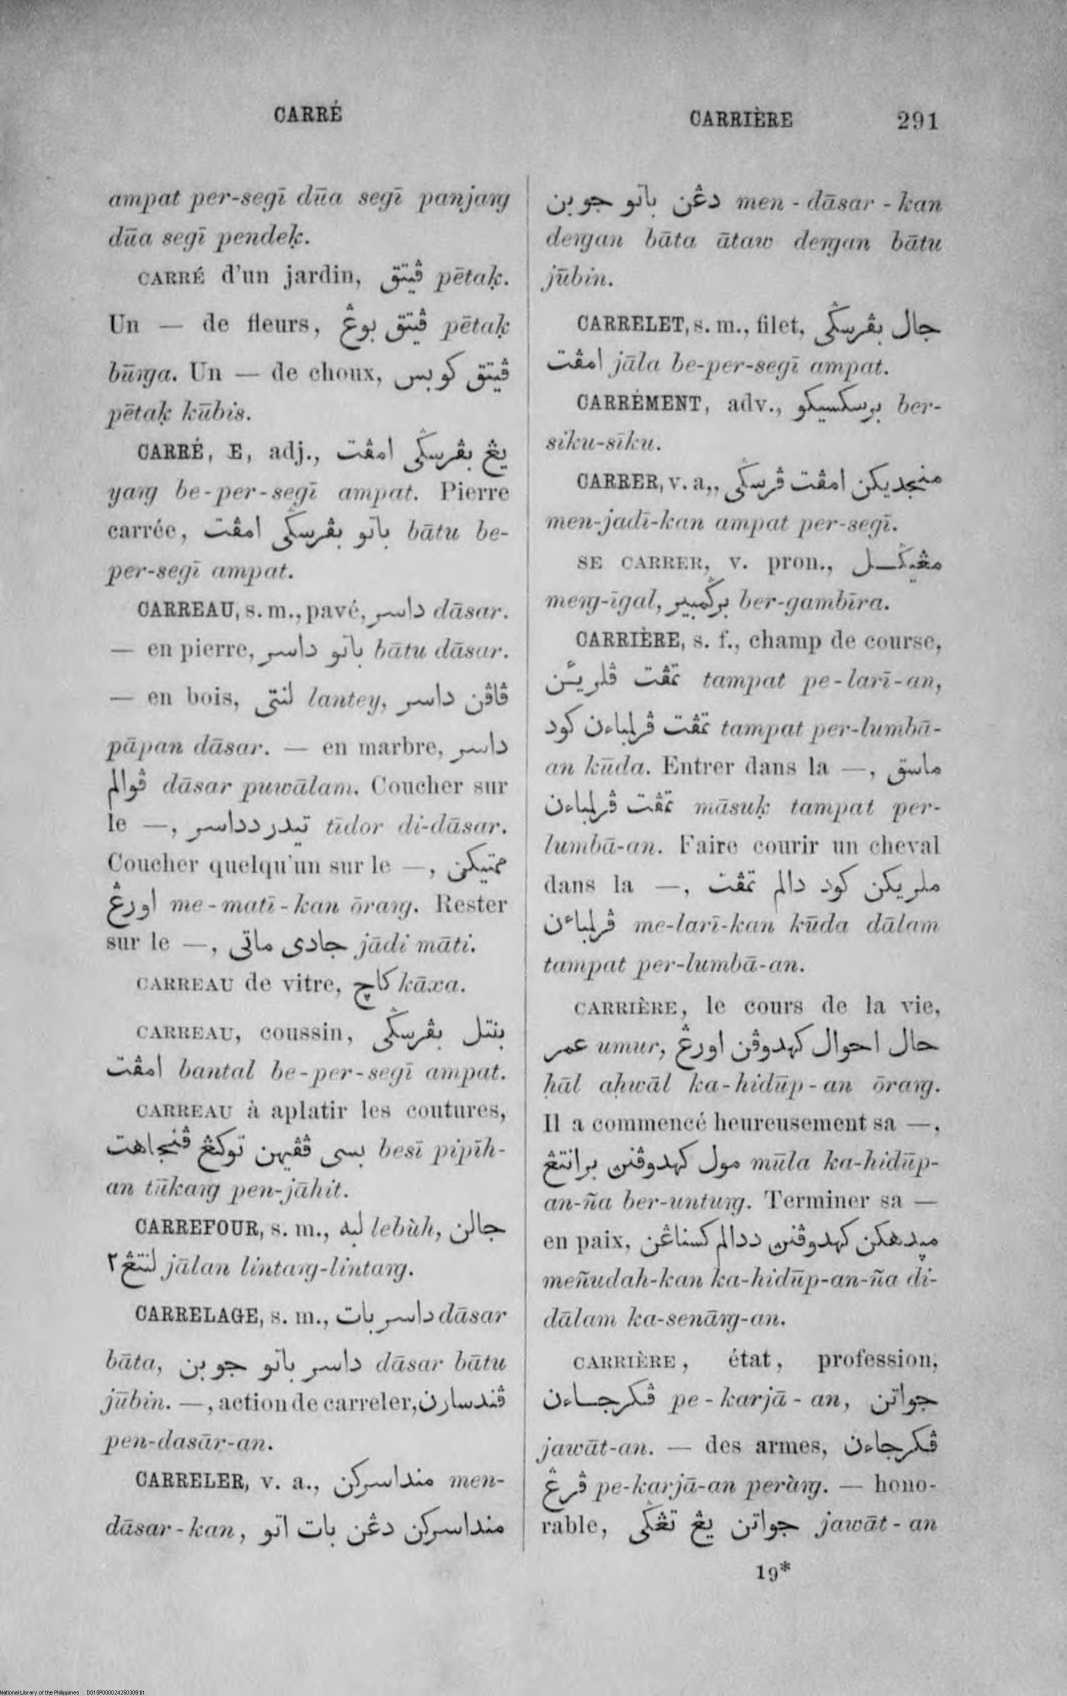 CARRÉ
CARRIÈRE 291
ampat per-segī dūa segī panjaṅg
dūa segī pendeḳ.
CARRÉ d'un jardin, ڤيتق pētaḳ.
Un — de fleurs, ڤيتق بوڠ pētaḳ
būṅga. Un — de choux, ڤيتق كوبس
pētaḳ kūbis.
CARRÉ, E, adj., يڠ بڤرسݢى امڤت
yaṅg be-per-segī ampat. Pierre
carrée, باتو بڤرسݢى امڤت bātu be-
per-segī ampat.
CARREAU, s. m., pavé, داسر dāsar.
— en pierre, باتو داسر bātu dāsar.
— en bois, لنتى lantey, ڤاڤن داسر
pāpan dāsar. — en marbre, داسر
ڤوالم dāsar puwālam. Coucher sur
le —, تيدر دداسر tīdor di-dāsar.
Coucher quelqu'un sur le —, ممتيكن
اورڠ me-matī-kan ōraṅg. Rester
sur le —, جادى ماتى jādi māti.
CARREAU de vitre, كاچ kāxa.
CARREAU, coussin, بنتل بڤرسݢى
امڤت bantal be-per-segī ampat.
CARREAU à aplatir les coutures,
بسى ڤڤيهن توكڠ ڤنجاهت besī pipīh-
an tūkaṅg pen-jāhit.
CARREFOUR, s. m., لبه lebùh, جالن
لنتڠ٢ jālan lintaṅg-lintaṅg.
CARRELAGE, s. m., داسر بات dāsar
bāta, داسر باتو جوبن dāsar bātu
jūbin. —, action de carreler, ڤندسارن
pen-dasār-an.
CARRELER, v. a., منداسركن men-
dāsar-kan, منداسركن دڠن بات اتو
دڠن باتو جوبن men-dāsar-kan
deṅgan bāta ātaw deṅgan bātu
jūbin.
CARRELET, s. m., filet, جال بڤرسݢى
امڤت jāla be-per-segī ampat.
CARRÉMENT, adv., برسكسيكو ber-
siku-sīku.
CARRER, v. a., منجديكن امڤت ڤرسݢى
men-jadī-kan ampat per-segī.
SE CARRER, v. pron., مڠيݢل
meṅg-īgal, برݢمبير ber-gambīra.
CARRIÈRE, s. f., champ de course,
تمڤت ڤلريئن tampat pe-larī-an,
تمڤت ڤرلمباءن كود tampat per-lumbā-
an kūda. Entrer dans la —, ماسق
تمڤت ڤرلمباءن māsuḳ tampat per-
lumbā-an. Faire courir un cheval
dans la —, ملريكن كود دالم تمڤت
ڤرلمباءن me-larī-kan kūda dālam
tampat per-lumbā-an.
CARRIÈRE, le cours de la vie,
عمر umur, حال احوال كهدوڤن اورڠ
ḥāl aḥwāl ka-hidūp-an ōraṅg.
Il a commencé heureusement sa —,
مول كهدوڤنن برانتڠ mūla ka-hidūp-
an-ña ber-untuṅg. Terminer sa —
en paix, ميدهكن كهدوڤنن ددالم كسناڠن
meñudah-kan ka-hidūp-an-ña di-
dālam ka-senāṅg-an.
CARRIÈRE, état, profession,
ڤكرجاءن pe-karjā-an, جواتن
jawāt-an. — des armes, ڤكرجاءن
ڤرڠ pe-karjā-an peràṅg. — hono-
rable, جواتن يڠ تڠݢى jawāt-an
19*
National Library of the Philippines